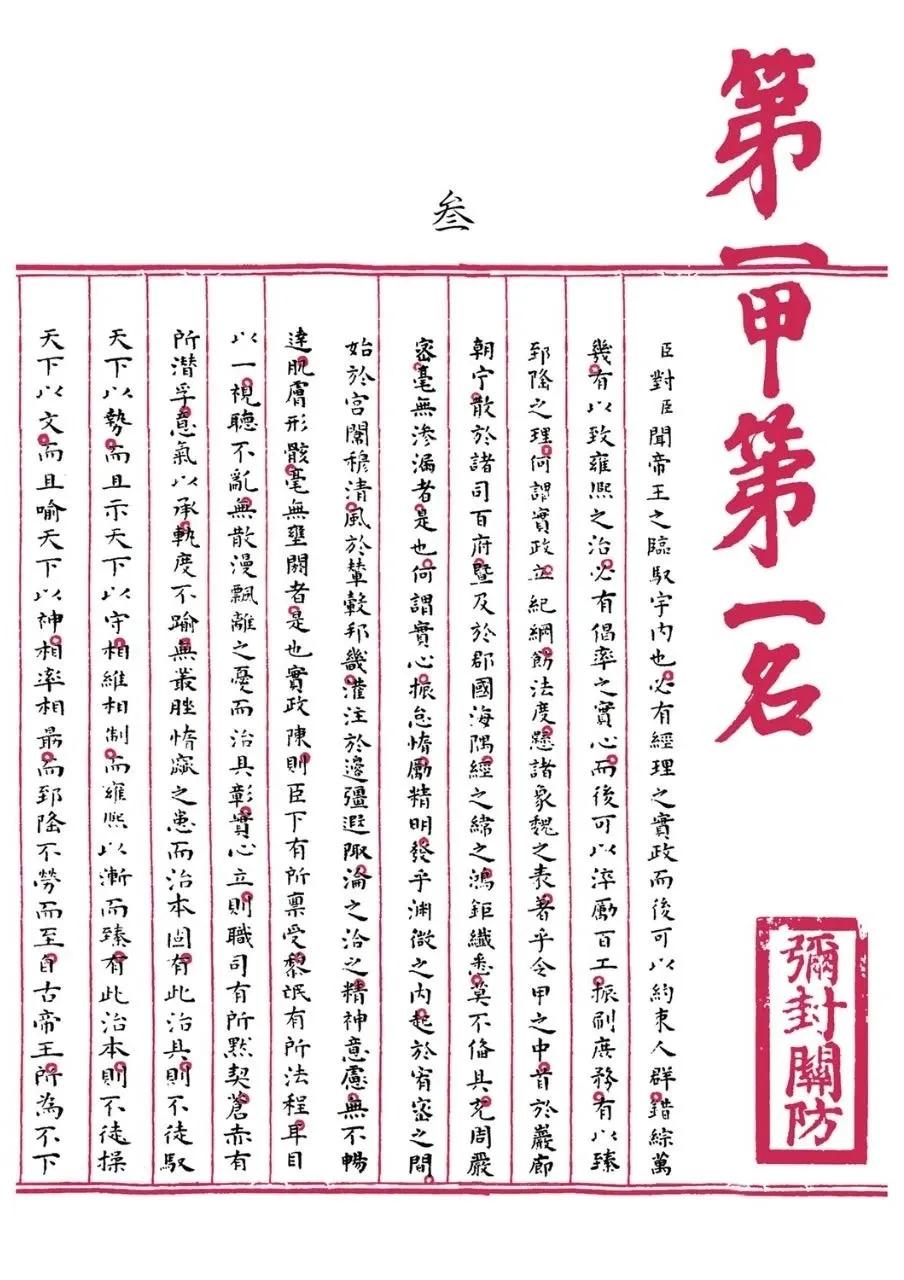 第一甲第一名
彌封關防
叁
臣對臣聞帝王之臨馭宇内也必有經理之實政而後可以約束人群錯綜萬
幾有以致雍熙之治必有倡率之實心而後可以淬勵百工振刷庶務有以臻
郅隆之理何謂實政立紀綱飭法度懸諸象魏之表著乎令甲之中首於巖廊
朝宁散於諸司百府暨及於郡國海隅經之緯之鴻鉅纖悉莫不俻具充周嚴
密毫無滲漏者是也何謂實心振怠惰勵精明發乎渊微之内起於宥密之間
始於宮闈穆清風於輦轂邦畿灌注於邊彊遐陬淪之洽之精神意慮無不暢
達肌膚形骸毫無壅閼者是也實政陳則臣下有所禀受黎氓有所法程耳目
以一視聽不亂無散漫飄離之憂而治具彰實心立則職司有所默契蒼赤有
所潜孚意氣以承軌度不踰無叢脞惰窳之患而治本固有此治具則不徒馭
天下以勢而且示天下以守相維相制而雍熙以漸而臻有此治本則不徒操
天下以文而且喻天下以神相率相勗而郅隆不勞而至自古帝王所為不下